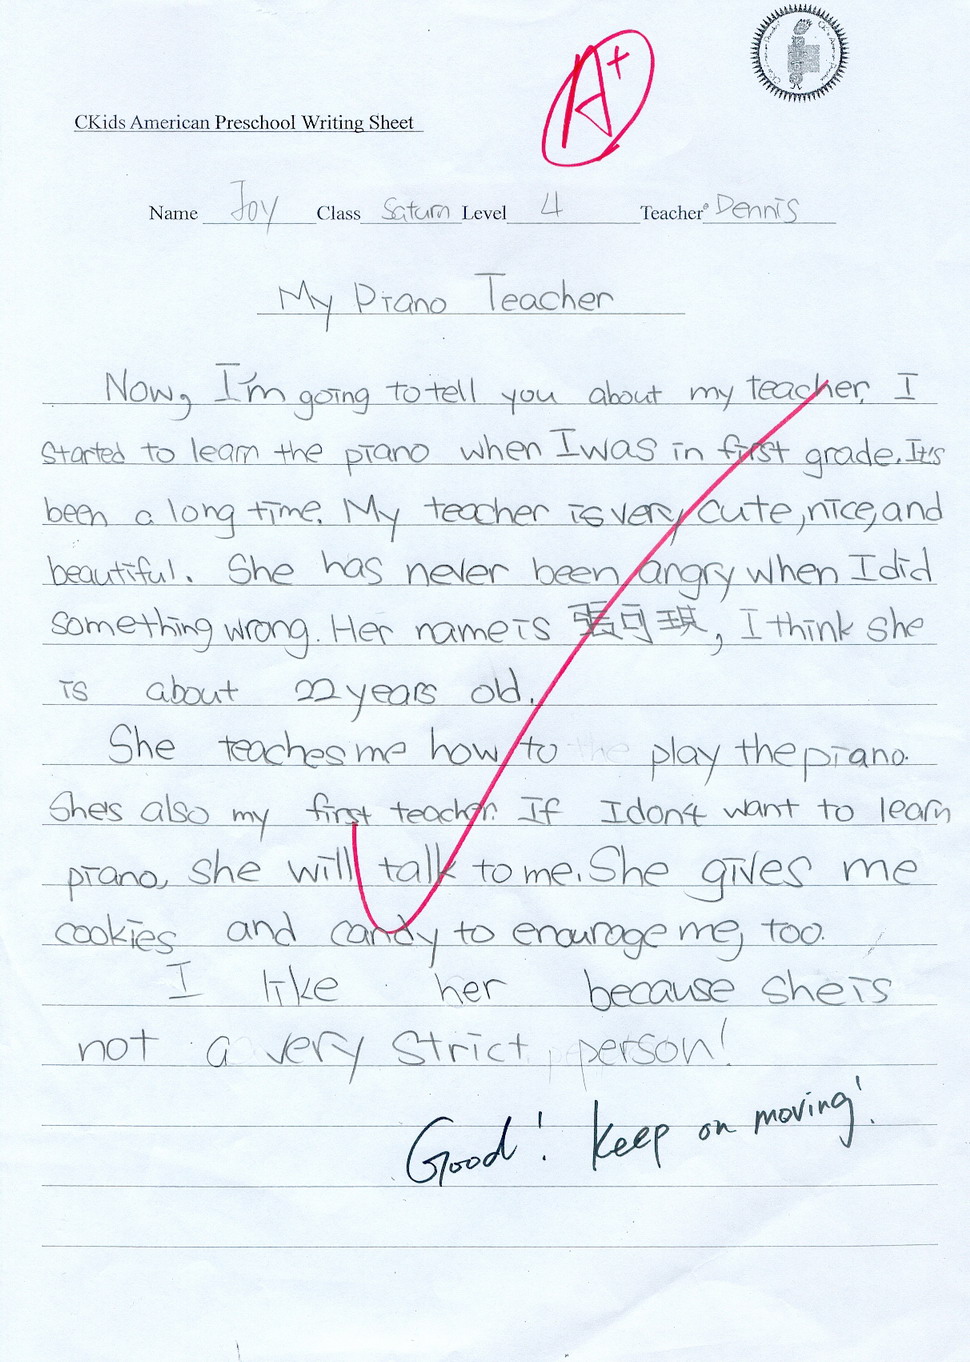 A+
CKids American Preschool Writing Sheet
Name Joy Class Saturn Level 4 Teacher Dennis
My Piano Teacher
Now, I'm going to tell you about my teacher. I
started to learn the piano when I was in first grade. It's
been a long time. My teacher is very cute, nice, and
beautiful. She has never been angry when I did
something wrong. Her name is 張可琪, I think she
is about 22 years old.
She teaches me how to play the piano.
She's also my first teacher. If I don't want to learn
piano, she will talk to me. She gives me
cookies and candy to enourage me, too.
I like her because she is
not a very strict person!
Good! Keep on moving!